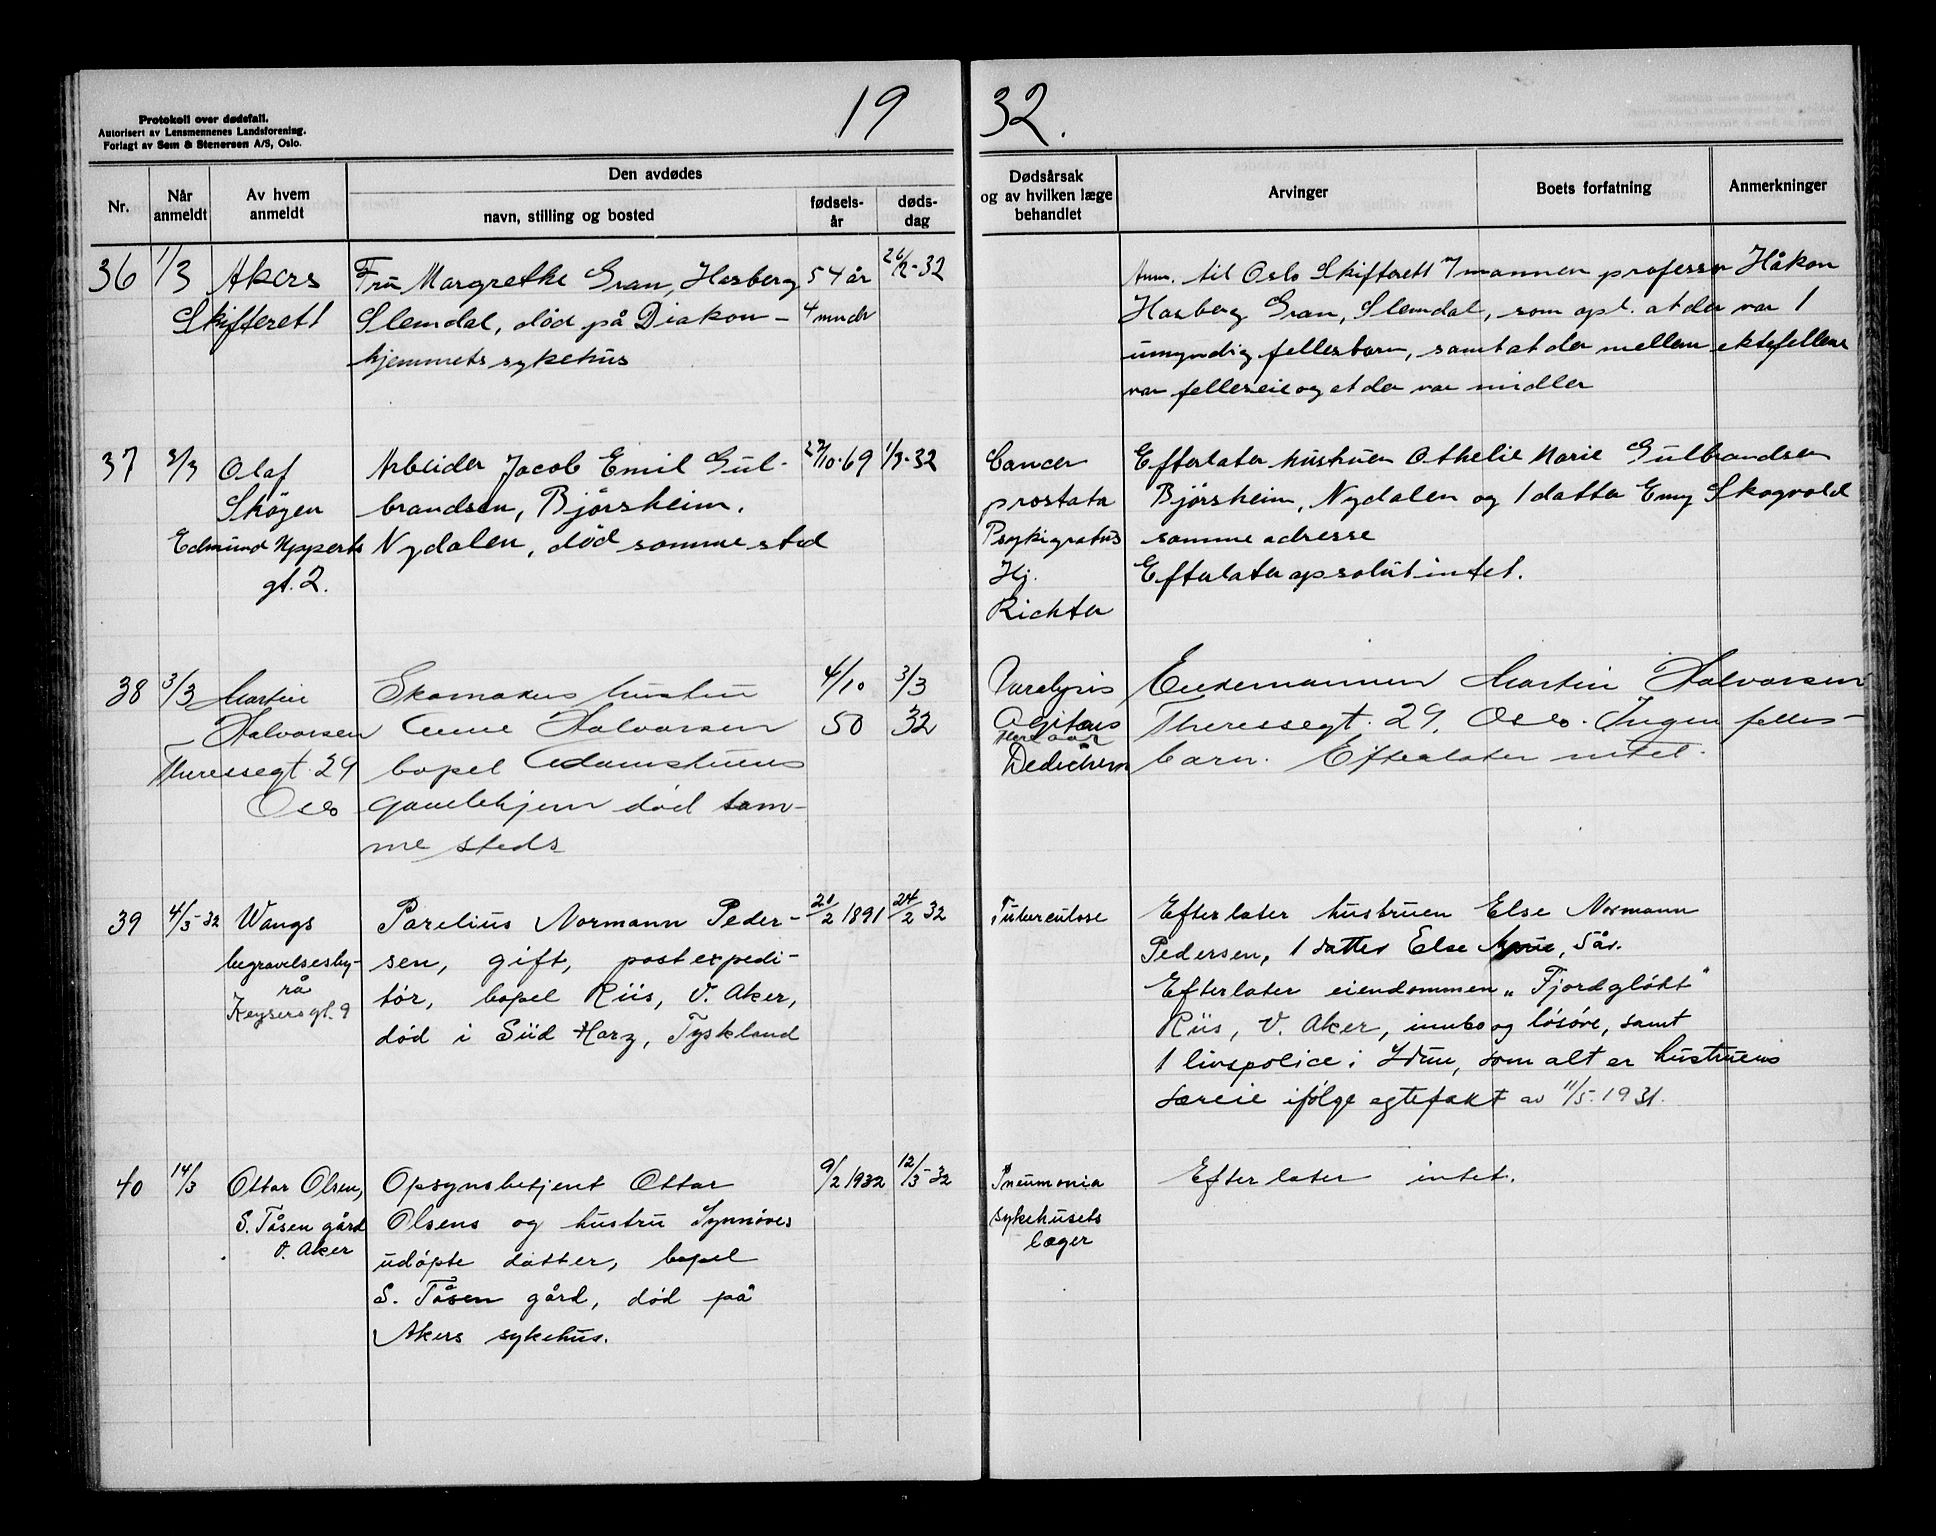 19 32.
Protokoll over dødsfall.
Autorisert av Lensmennenes Landsforening.
Forlagt av Sem & Stenersen A/S, Oslo.
Nr.
Når anmeldt
Av hvem anmeldt
Den avdødes
navn, stilling og bosted
fødsels-år
døds-dag
Dødsårsak og av hvilken læge behandlet
Arvinger
Boets forfatning
Anmerkninger
36 1/3 Akers Fru Margrethe Gran, Hasberg 54 år 26/2-32
Skifterett Slemdal, død på Diakon- 4 mndr
hjemmets sykehus
Anm. til Oslo Skifterett mannen professor Håkon
Hasberg Gran, Slemdal, som opl. at der var 1
umyndig fellesbarn, samt at der mellem ektefellene
var felleseie og at der var midler
37 2/3 Olaf Arbeider Jacob Emil Gul- 27/10-69 1/3-32
Skøyen brandsen, Bjørsheim,
Edmund Nypperts Nydalen, død samme sted
gt. 2.
Cancer
prostata
Hj.
Richter
Efterlater hustruen Othelie Marie Gulbrandsen
Bjørsheim, Nydalen og 1 datter Emy Skogvold
samme adresse
Efterlater apsolut intet.
38 3/3 Martin Skomakers hustru 4/10 3/3
Halvorsen Anne Halvorsen 50 32
Theresegt. 29 bopel Adamstuens
Oslo gamlehjem død sam-
me steds
Paralysis
Agitans
Dedichen
Enkemannen Martin Halvorsen
Theresegt. 29, Oslo. Ingen felles-
barn. Efterlater intet.
39 4/3-32 Wangs Parelius Normann Peder- 20/2 1891 24/2 32
begravelsesby- sen, gift, postexpedi-
rå tør, bopel Riis, V. Aker,
Keysersgt. 9 død i Süd Harz, Tyskland
Tuberculose
Efterlater hustruen Else Normann
Pedersen, 1 datter Else, 5 år.
Efterlater eiendommen „Fjordgløtt"
Riis, V. Aker, innbo og løsøre, samt
1 livspolice i Idun, som alt er hustruens
særeie ifølge egtepakt av 11/5. 1931.
40 14/3 Ottar Olsen, Opsynsbetjent Ottar 9/2 1932 12/3-32
S. Tåsen gård Olsens og hustru Synnøves
V. Aker udøpte datter, bopel
S. Tåsen gård, død på
Akers sykehus.
Pneumonia
sykehusets
læger
Efterlater intet.